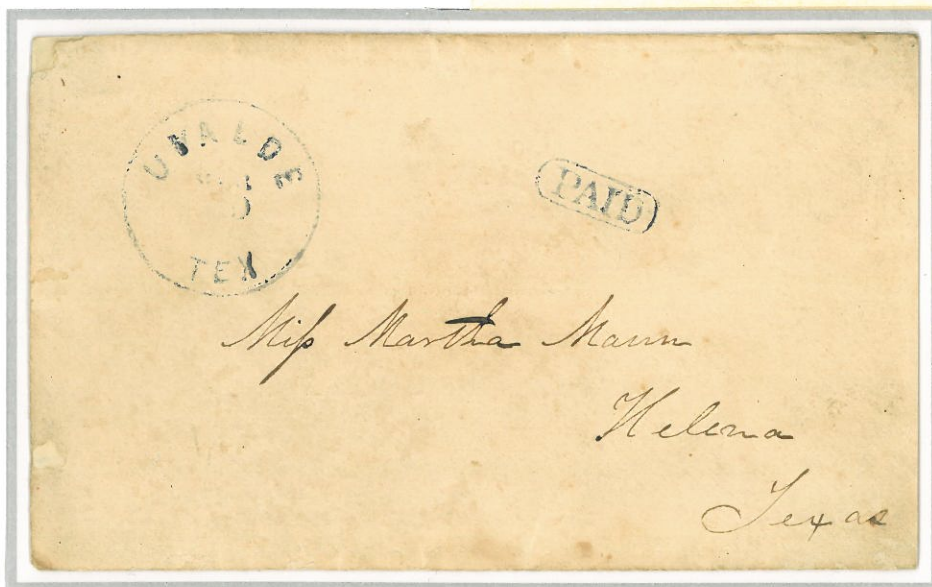 UVALDE
TEX
PAID
Miss Martha Mann
Helena
Texas